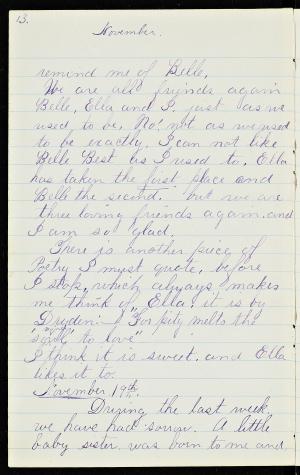 13.
November.
remind me of Belle.
We are all friends again
Belle, Ella and I. just as we
used to be. No! not as we used
to be exactly. I can not like
Belle Best as I used to. Ella
has taken the first place and
Belle the second. but we are
three loving friends again. and
I am so glad.
There is another piece of
Poetry I must quote, before
I stop, which always makes
me think of Ella, it is by
Dryden:- "For pity melts the
"soul" to love"
I think it is sweet. and Ella
likes it to.
November 19th
During the last week
we have had sorrow. A little
baby sister was born to me and,